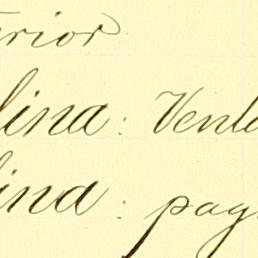 erior
lina: Venta
lina: pag